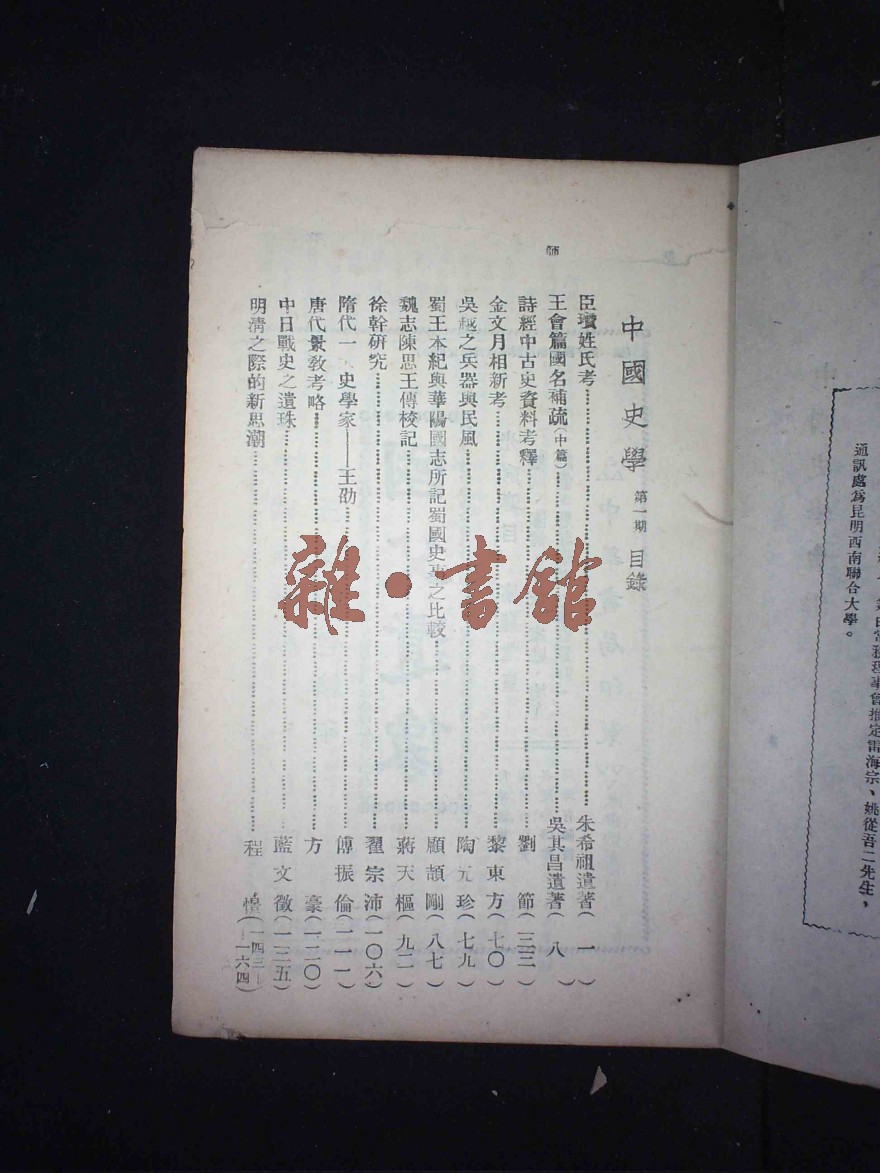 通訊處為昆明西南聯合大學。
理事會推定雷海宗、姚從吾二先生，
中國史學 第一期 目錄
臣瓚姓氏考 朱希祖遺著（一）
王會篇國名補疏（中篇） 吳其昌遺著（八）
詩經中古史資料考釋 劉節（三三）
金文月相新考 黎東方（七〇）
吳越之兵器與民風 陶元珍（七九）
蜀王本紀與華陽國志所記蜀國史事之比較 顧頡剛（八七）
魏志陳思王傳校記 蔣天樞（九二）
徐幹研究 翟宗沛（一〇六）
隋代一 史學家——王劭 傅振倫（一一一）
唐代景教考略 方豪（一二〇）
中日戰史之遺珠 藍文徵（一三五）
明清之際的新思潮 程憬（一四三—一六四）
雜·書館